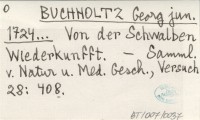 O BUCHHOLTZ Georg jun.
1724... Von der Schwalben
Wiederkunfft. — Samml.
v. Natur u. Med. Gesch., Versuch
28: 408.
BT1007/0057